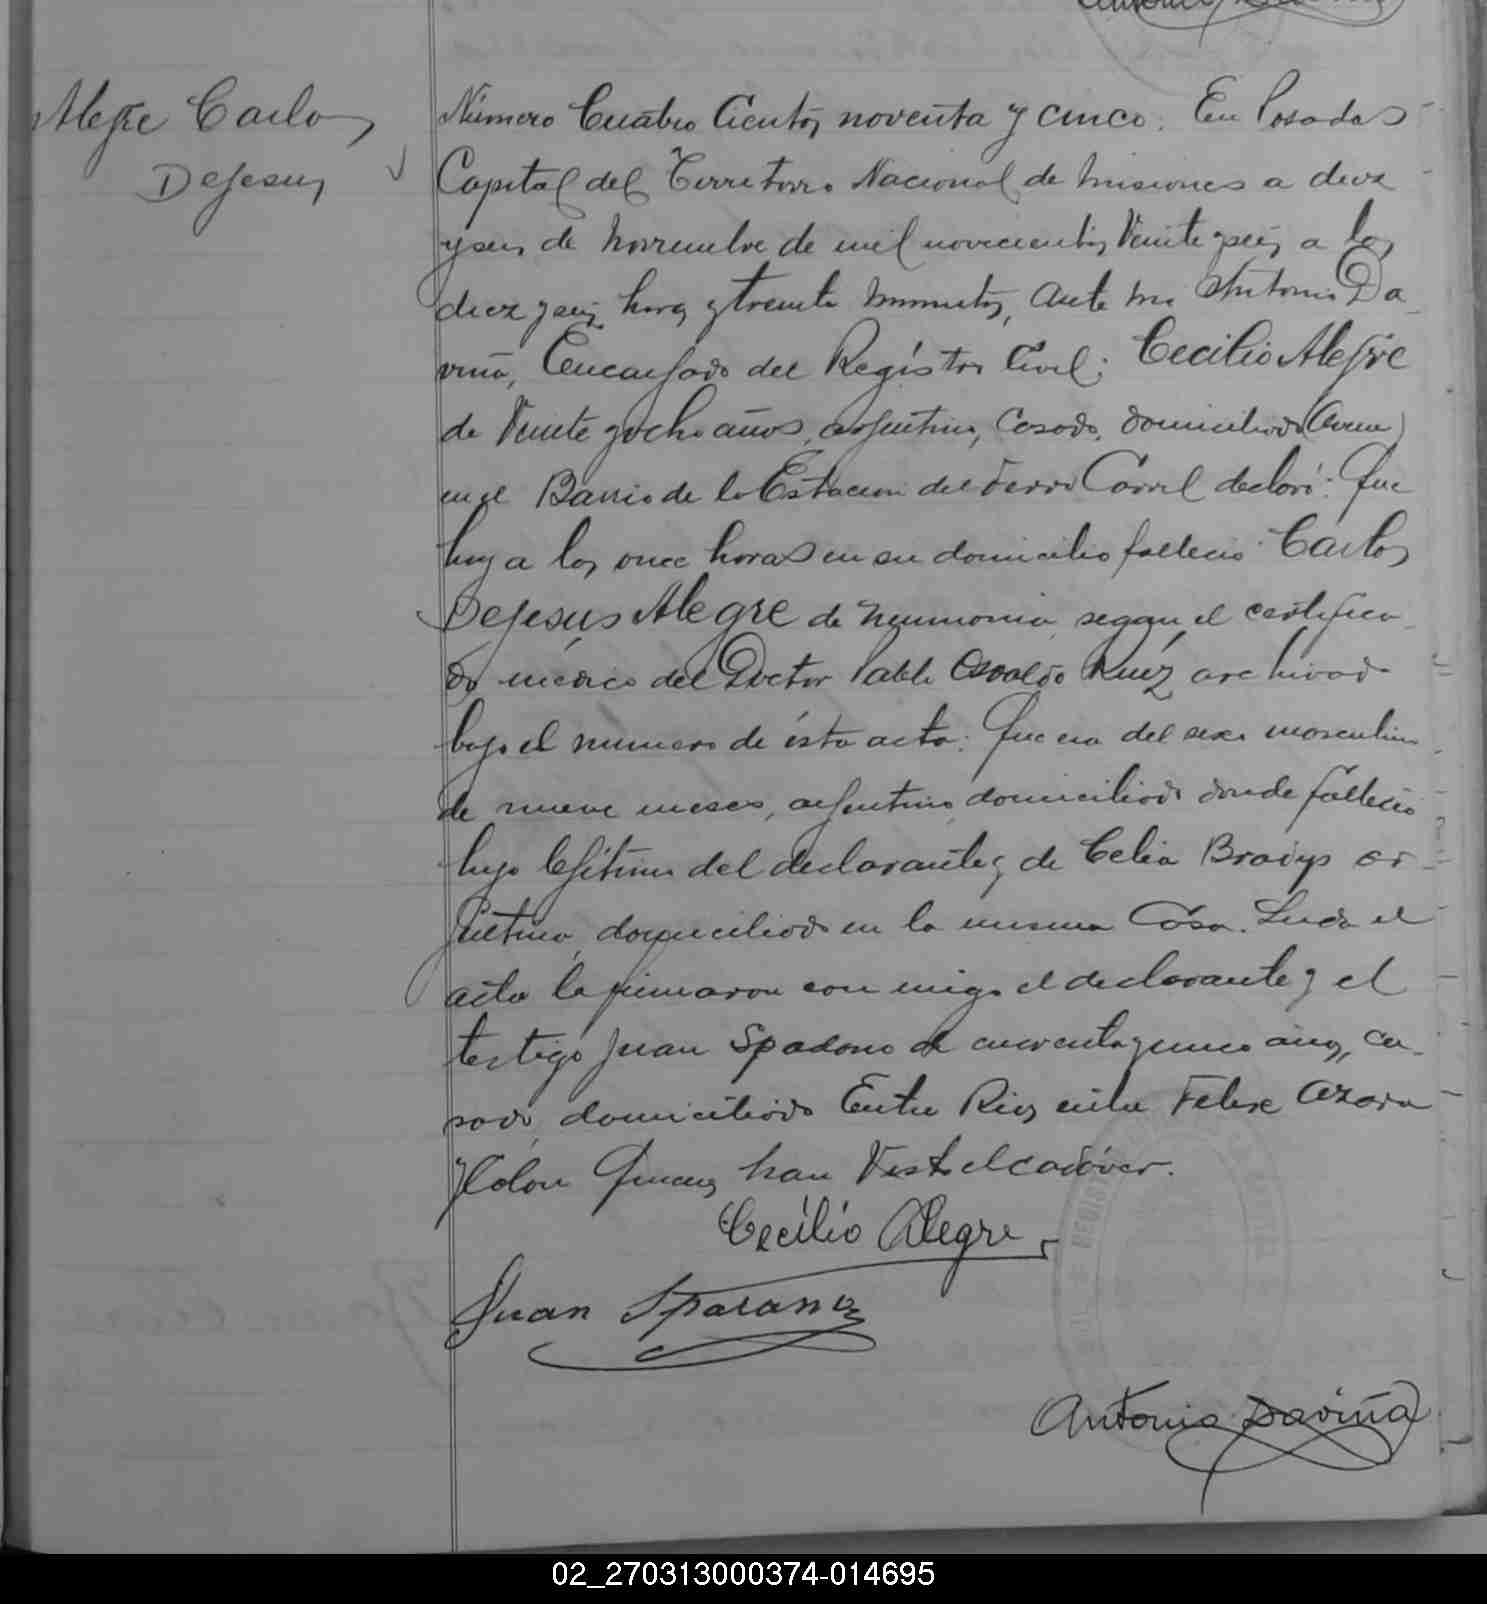 Alegre Carlos
DeJesus
Número Cuatro Cientos noventa y cinco. En Posadas
Capital del Territorio Nacional de Misiones a diez
y seis de Noviembre de mil novecientos Veinte y seis a las
diez y seis horas y treinta minutos, ante mi Antonio Da-
viña, Encargado del Registro Civil; Cecilio Alegre
de Veinte y ocho años, argentino, casado, domiciliado
en el Barrio de la Estacion del Ferro Carril declaró: Que
hoy a las once horas en su domicilio fallecio Carlos
DeJesús Alegre de neumonia segun el certifica-
do médico del Doctor Pablo Osvaldo Ruíz archivado
bajo el numero de ésta acta. Que era del sexo masculino
de nueve meses, argentino, domiciliado donde fallecio
hijo legítimo del declarante y de Celia ar-
gentina, domiciliada en la misma Casa. Leida el
acta la firmaron con migo el declarante y el
testigo Juan de cuarenta y cinco años, ca-
sado, domiciliado Entre Rios entre Felix Azara
y Colon Quienes han Visto el cadáver.
Cecilio Alegre
Juan
Antonio Daviña
REGISTRO
02_270313000374-014695